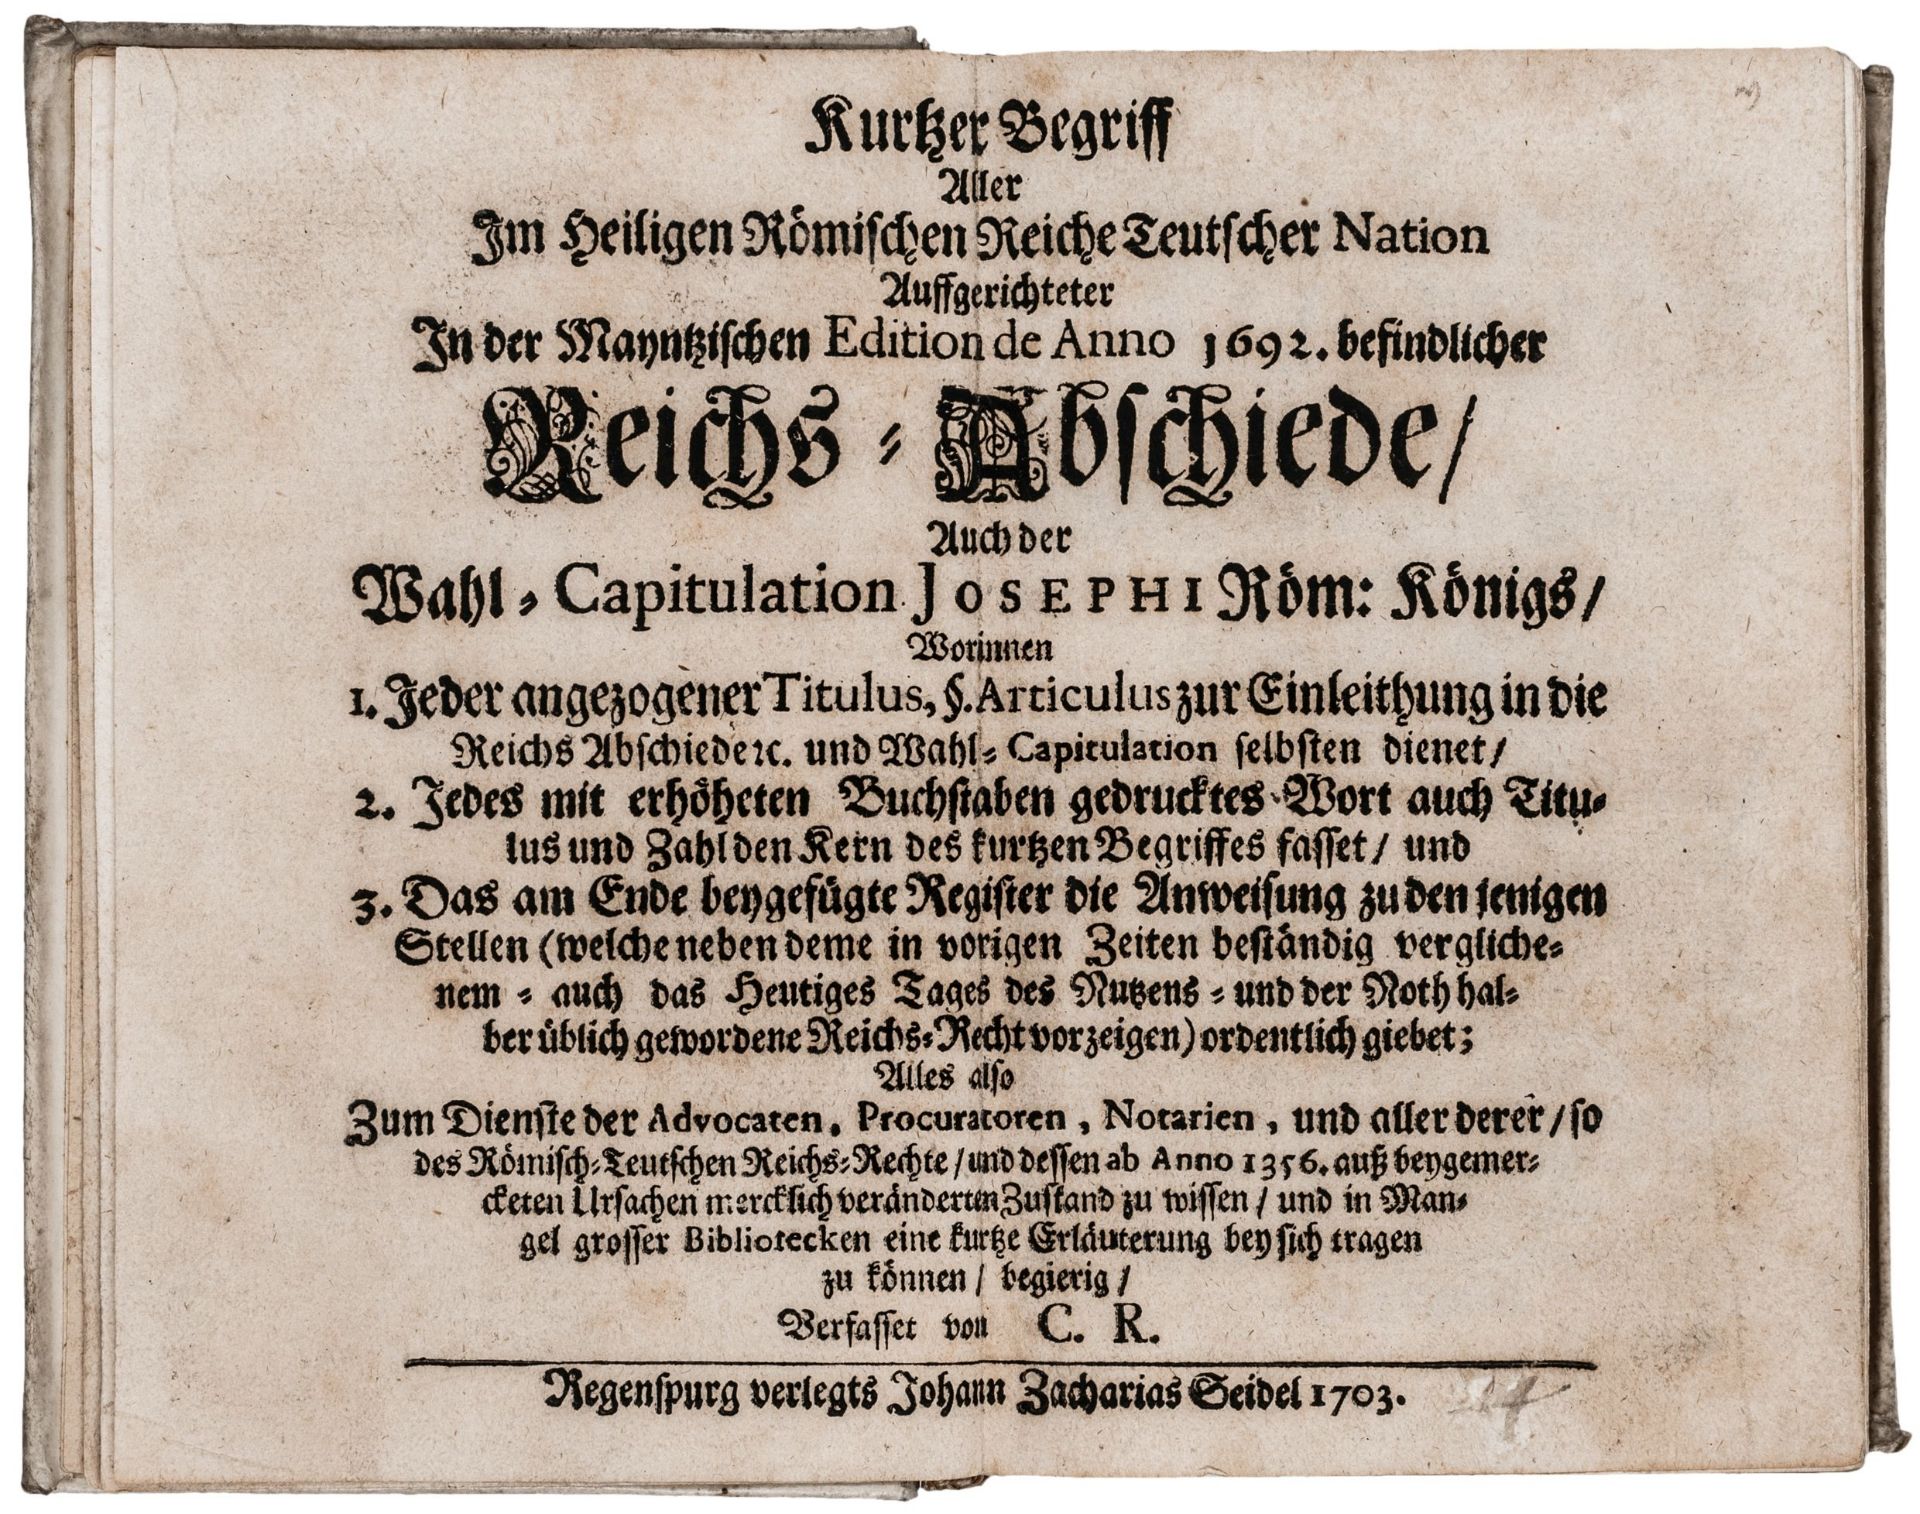 Kurtzer Begriff
Aller
Im Heiligen Römischen Reiche Teutscher Nation
Auffgerichteter
In der Mayntzischen Edition de Anno 1692. befindlicher
Reichs-Abschiede/
Auch der
Wahl-Capitulation JOSEPHI Röm: Königs/
Worinnen
1. Jeder angezogener Titulus, §. Articulus zur Einleithung in die
Reichs Abschiede ꝛc. und Wahl-Capitulation selbsten dienet/
2. Jedes mit erhöheten Buchstaben gedrucktes Wort auch Titu-
lus und Zahl den Kern des kurtzen Begriffes fasset/ und
3. Das am Ende beygefügte Register die Anweisung zu den jenigen
Stellen (welche neben deme in vorigen Zeiten beständig vergliche-
nem - auch das Heutiges Tages des Nutzens - und der Noth hal-
ber üblich gewordene Reichs-Recht vorzeigen) ordentlich giebet;
Alles also
Zum Dienste der Advocaten, Procuratoren, Notarien, und aller derer/ so
des Römisch-Teutschen Reichs-Rechte/ und dessen ab Anno 1356. auß beygemer-
cketen Ursachen mercklich veränderten Zustand zu wissen/ und in Man-
gel grosser Bibliotecken eine kurtze Erläuterung bey sich tragen
zu können/ begierig/
Verfasset von C. R.
Regenspurg verlegts Johann Zacharias Seidel 1703.